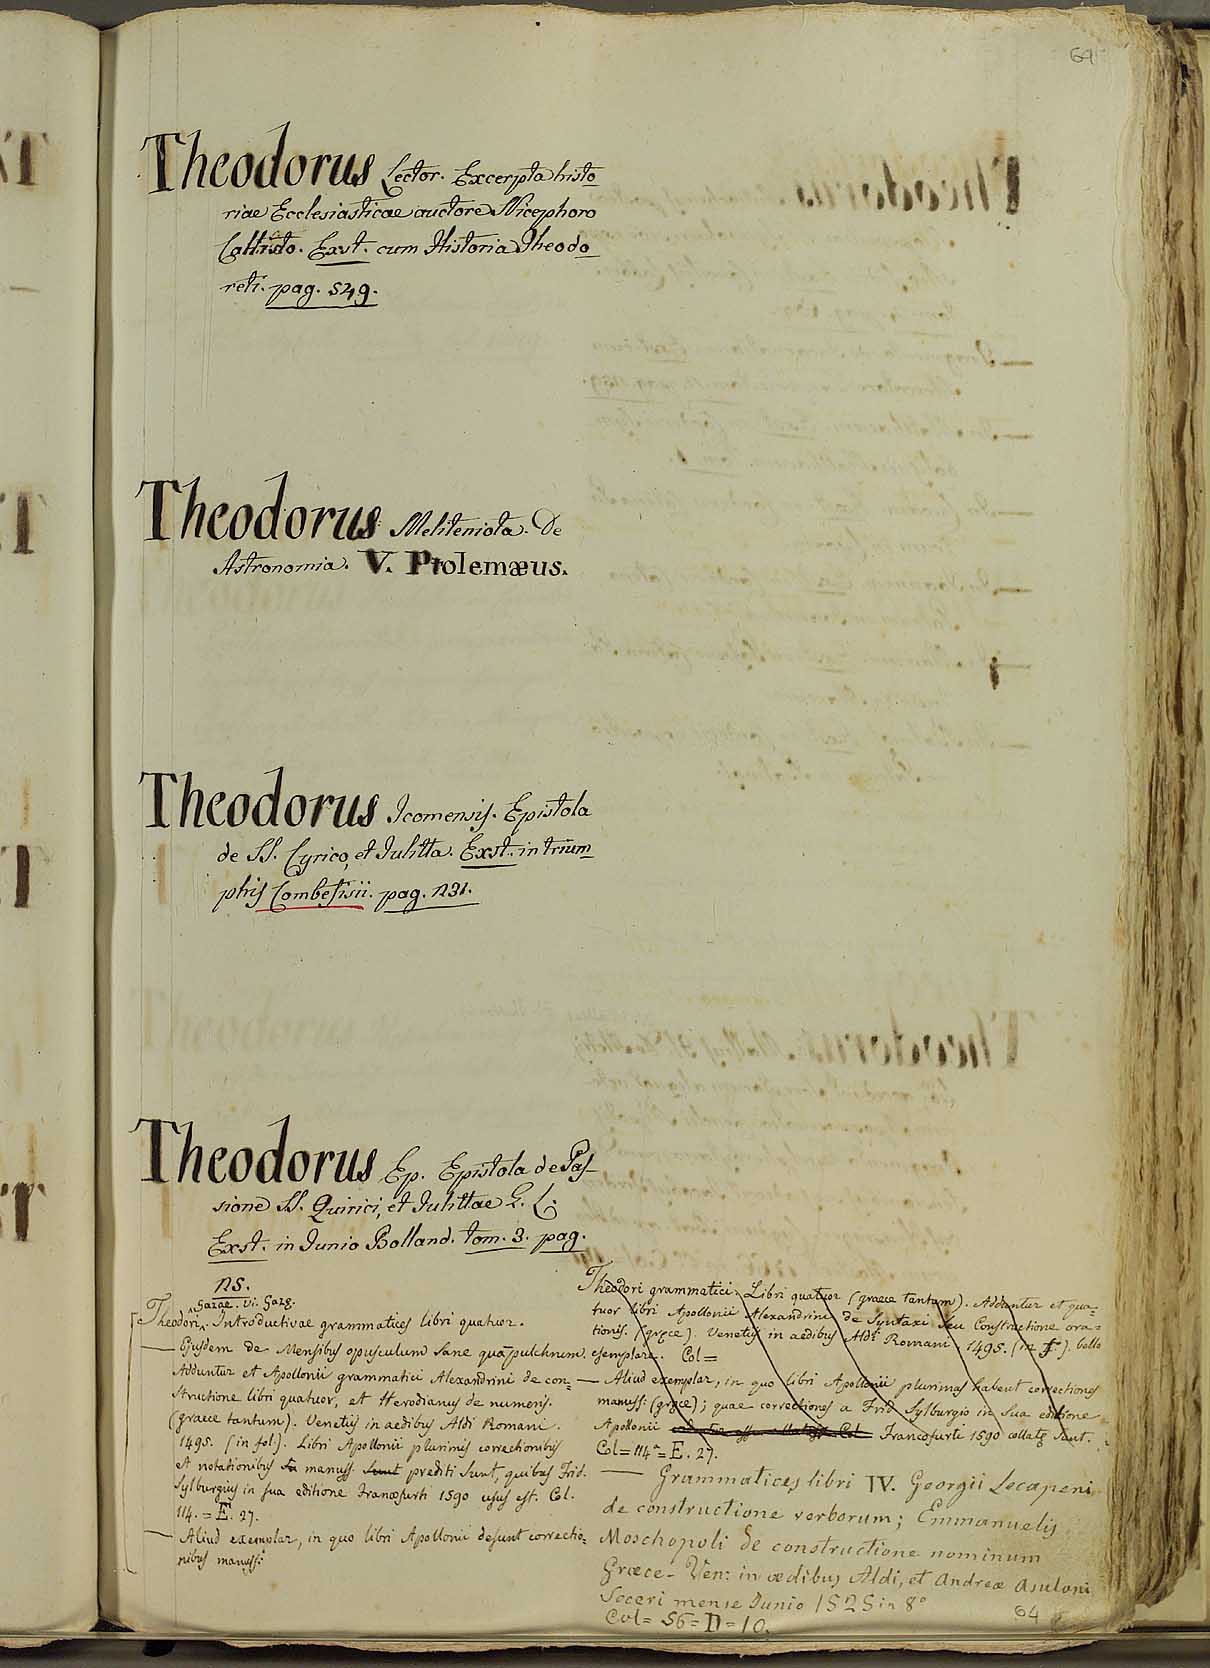 64
Theodorus Lector. Excerpta histo
riae Ecclesiasticae auctore Nicephoro
Callisto. Exst. cum Historia Theodo
reti. pag. 549.
Theodorus Meliteniota. De
Astronomia. V. Ptolemæus.
Theodorus Icomensis. Epistola
de SS. Cyrico, et Julitta. Exst. in trium
phis Combefisii. pag. 231.
Theodorus Ep. Epistola de Pas-
sione SS. Quirici, et Julittae G. L.
Exst. in Junio Bolland. tom. 3. pag.
25.
Gazae. Vi. Gaza.
Theodori Introductivae grammatices libri quatuor.
— Ejusdem de Mensibus opusculum sane quā pulchrum.
Adduntur et Apollonii grammatici Alexandrini de con=
structione libri quatuor, et Herodianus de numeris.
(graece tantum). Venetiis in aedibus Aldi Romani.
1495. (in fol.). Libri Apollonii plurimis correctionibus
et notationibus manuss. sunt prediti sunt, quibus Frid.
Sylburgius in sua editione Francofurti 1590 usus est. Col.
114. = E. 27.
— Aliud exemplar, in quo libri Apollonii desunt correctio=
nibus manuss:
Theodori grammatici. Libri quatuor (graece tantum). Adduntur et qua=
tuor libri Apollonii Alexandrini de Syntaxi seu Constructione ora=
tionis. (gręce). Venetiis in aedibus Aldi Romani. 1495. (in f.). bello
esemplare. Col=
— Aliud exemplar, in quo libri Apollonii plurimas habent correctiones
manuss: (gręce); quae correctiones a Frid. Sylburgio in sua editione
Apollonii Francofurti 1590 collatę sunt.
Col = 114 = E. 27.
— Grammatices libri IV. Georgii Lecapeni
de constructione verborum; Emmanuelis
Moschopoli de constructione nominum
Græce - Ven: in ædibus Aldi, et Andreæ Asulani
Soceri mense Junio 1525 in 8°
Col = 56 = D = 10.
64